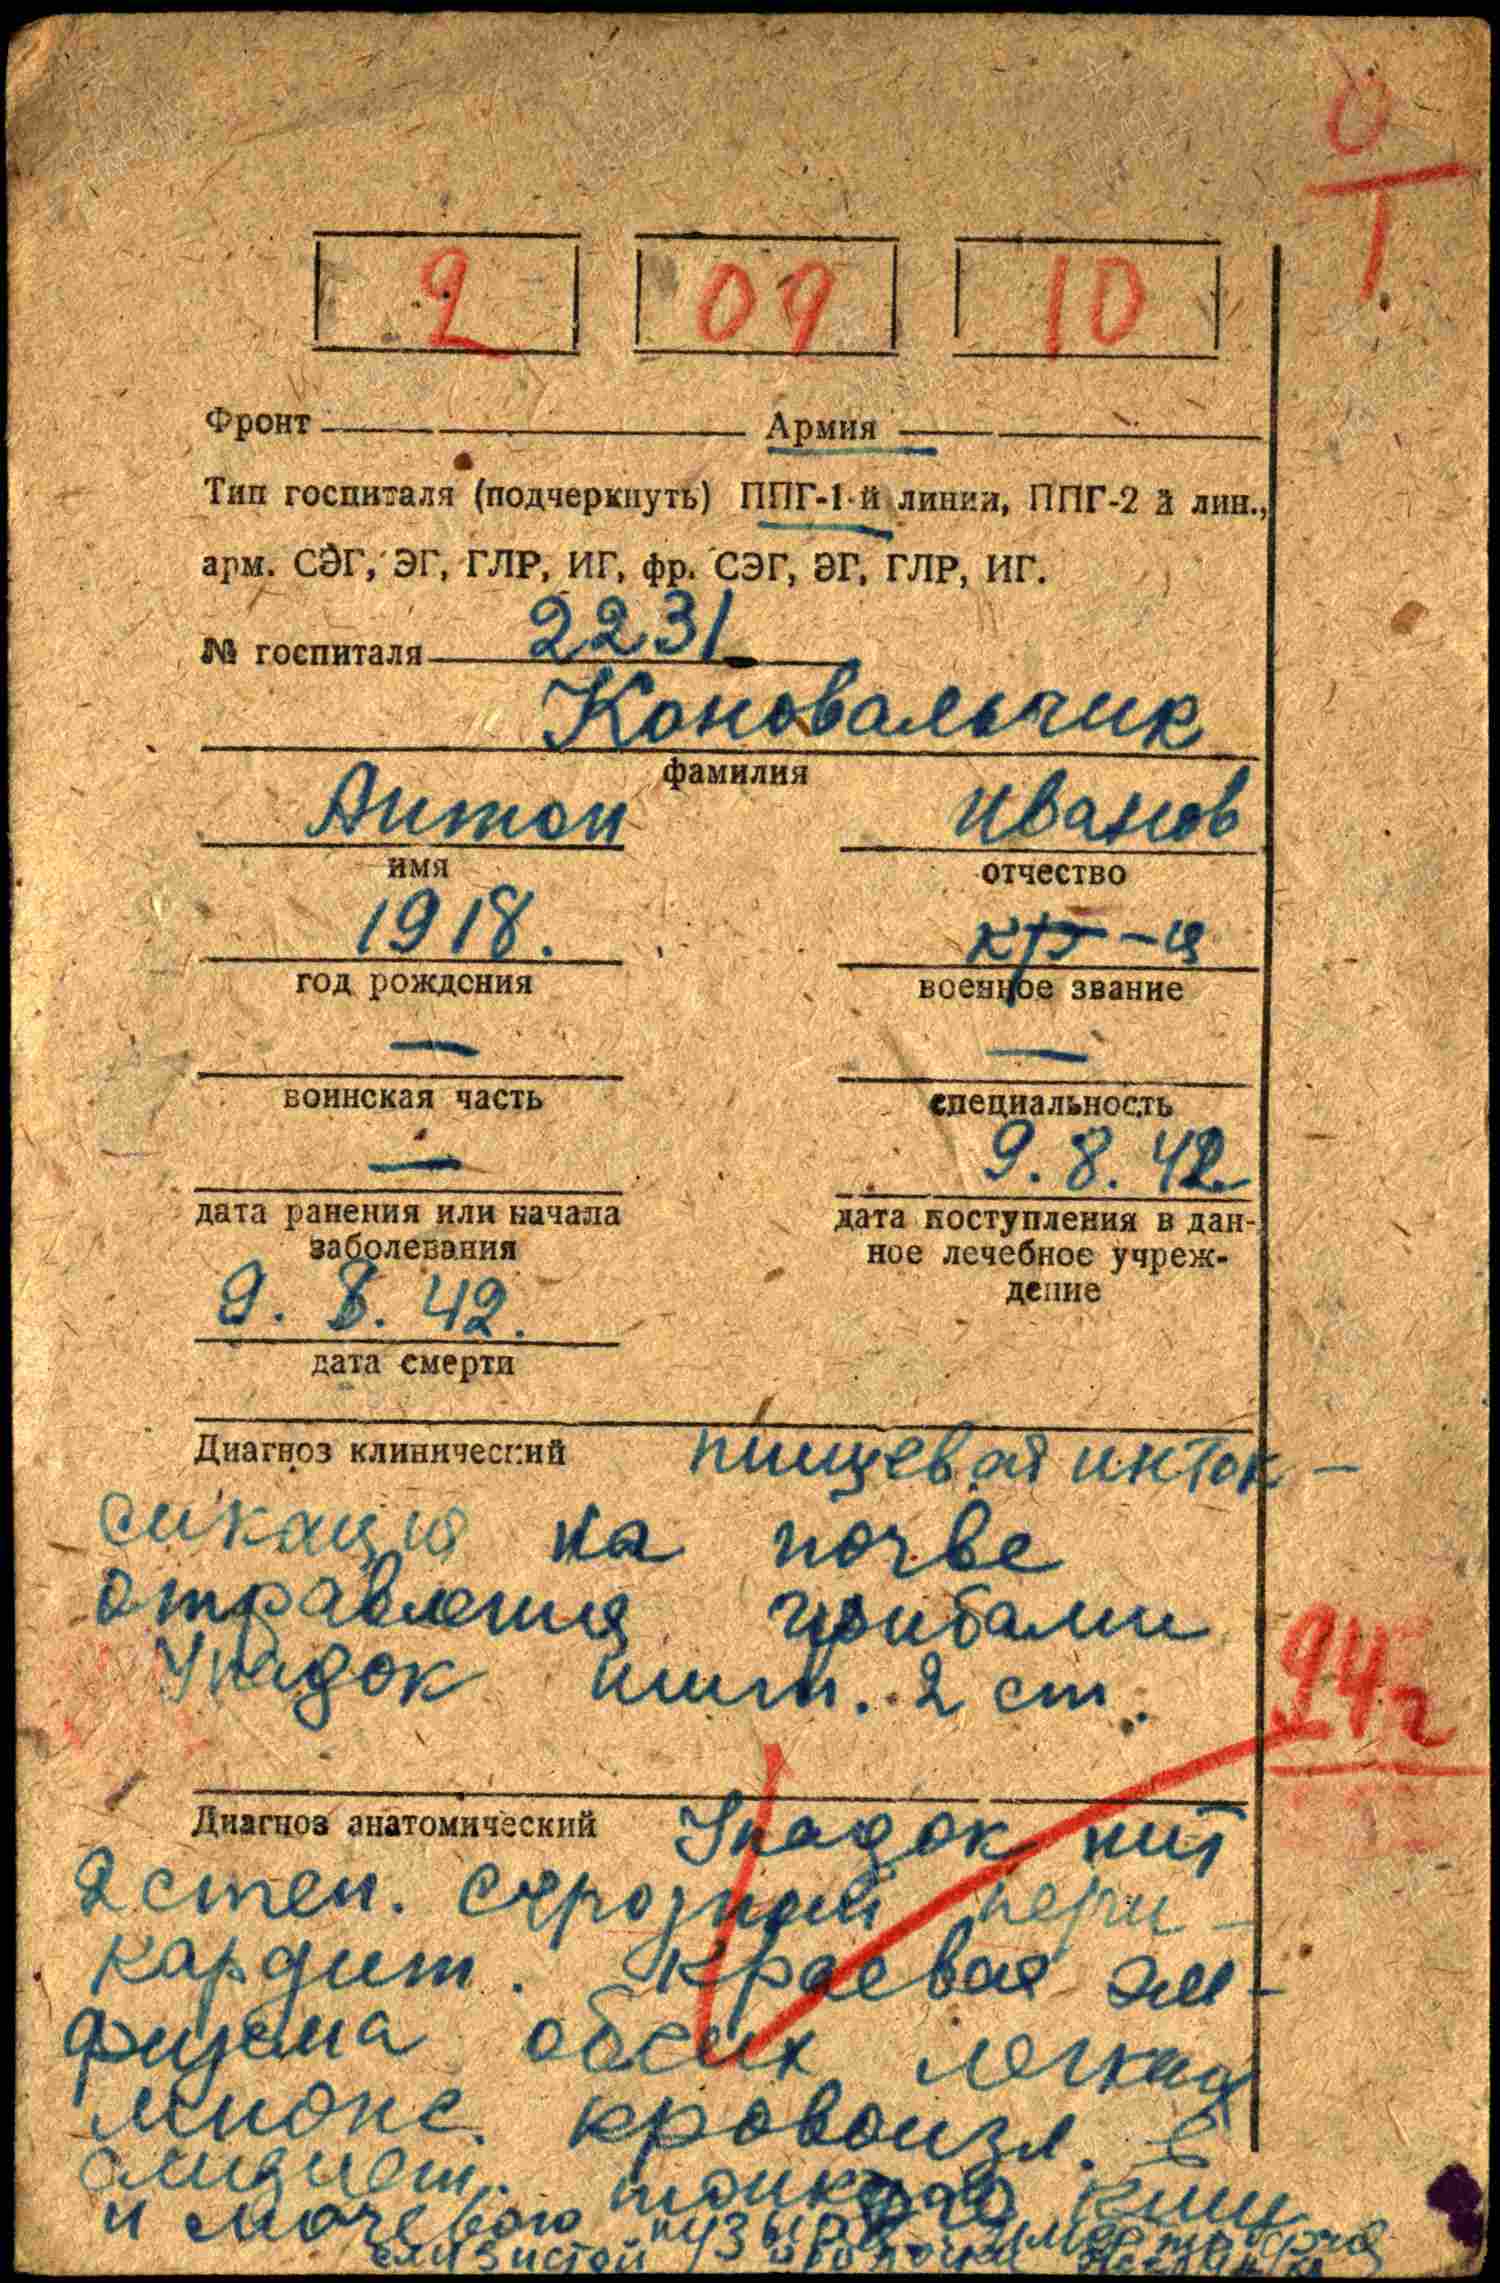 0
1
2 09 10
Фронт Армия
Тип госпиталя (подчеркнуть) ППГ-1-й линии, ППГ-2 й лин.,
арм. СЭГ, ЭГ, ГЛР, ИГ, фр. СЭГ, ЭГ, ГЛР, ИГ.
№ госпиталя 2231
Коновальчик
фамилия
Антон Иванов
имя отчество
1918. кр-ц
год рождения военное звание
— —
воинская часть специальность
— 9.8.42.
дата ранения или начала заболевания
дата поступления в дан-
ное лечебное учреж-
дение
9.8.42.
дата смерти
Диагноз клинический пищевая инток-
сикация на почве
отравления грибами
Упадок пит. 2 ст.
94г
Диагноз анатомический Упадок пит
2 степ. серозный пери-
кардит. Краевая эм-
физема обеих легких
множ. кровоизл. в
слизист. тонкого киш
и мочевого пузыря
слизистой оболочки